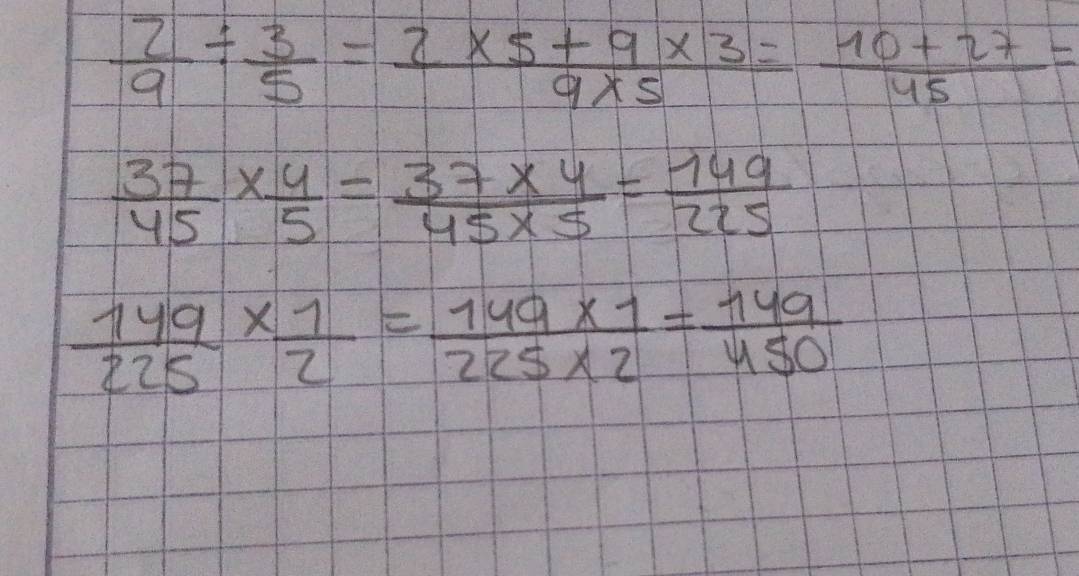 2/9 + 3/5 = (2 × 5 + 9 × 3)/(9 × 5) = (10 + 27)/45 =
37/45 × 4/5 = (37 × 4)/(45 × 5) = 149/225
149/225 × 1/2 = (149 × 1)/(225 × 2) = 149/450